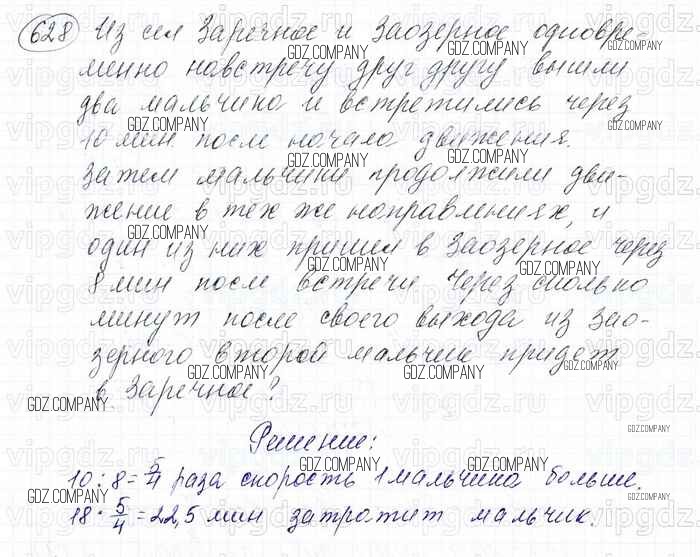 628 Из сел Заречное и Заозерное одновре-
менно навстречу друг другу вышли
два мальчика и встретились через
10 мин после начала движения.
Затем мальчики продолжили дви-
жение в тех же направлениях, и
один из них пришел в Заозерное через
8 мин после встречи. Через сколько
минут после своего выхода из Зао-
зерного второй мальчик придет
в Заречное?
Решение:
10 : 8 = 5/4 раза скорость 1 мальчика больше.
18 · 5/4 = 22,5 мин затратит мальчик.